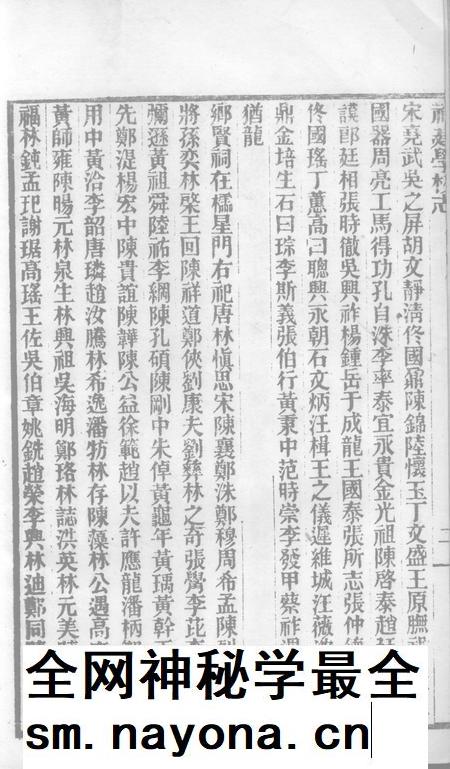 福建學校志
宋堯武吳之屏胡文靜淸佟國鼐陳錦陸懷玉丁文盛王原膴
國器周亮工馬得功孔自洙李率泰宜永貴金光祖陳啓泰趙廷
謨郎廷相張時徹吳興祚楊鍾岳于成龍王國泰張所志張仲
佟國瑤丁蕙高曰聰興永朝石文炳汪楫王之儀遲維城汪薇
鼎金培生石曰琮李斯義張伯行黃秉中范時崇李發甲蔡祚
猶龍
鄉賢祠在櫺星門右祀唐林慎思宋陳襄鄭洙鄭穆周希孟陳烈
將孫奕林棨王回陳祥道鄭俠劉康夫劉彝林之奇張觷李芘
彌遜黃祖舜陸祐李綱陳孔碩陳剛中朱倬黃龜年黃瑀黃幹
先鄭湜楊宏中陳貴誼陳韡陳公益徐範趙以夫許應龍潘柄
用中黃洽李韶唐璘趙汝騰林希逸潘牥林存陳藻林公遇高
黃師雍陳暘元林泉生林興祖吳海明鄭珞林誌洪英林元美
福林鈍孟玘謝琚高瑤王佐吳伯章姚銑趙榮李興林迪鄭同
二
全网神秘学最全
sm.nayona.cn